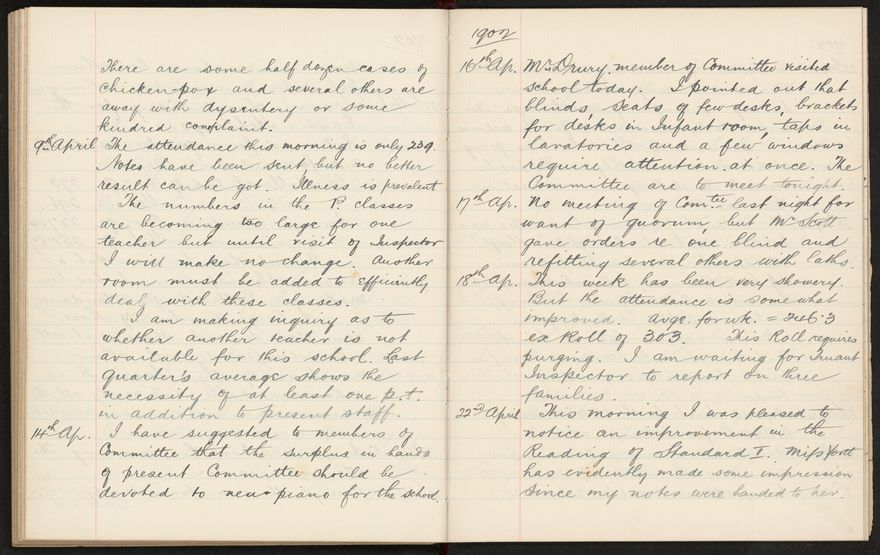 There are some half dozen cases of
chicken-pox and several others are
away with dysentery or some
kindred complaint.
9th April The attendance this morning is only 239.
Notes have been sent, but no better
result can be got. Illness is prevalent
The numbers in the P. classes
are becoming too large for one
teacher but until visit of Inspector
I will make no change. Another
room must be added to efficiently
deal with these classes.
I am making inquiry as to
whether another teacher is not
available for this school. Last
quarter's average shows the
necessity of at least one p.t.
in addition to present staff.
14th Ap. I have suggested to members of
Committee that the surplus in hands
of present Committee should be
devoted to new piano for the school.
1902
16th Ap. Mr Drury, member of Committee visited
school today. I pointed out that
blinds, seats of few desks, brackets
for desks in Infant room, taps in
lavatories and a few windows
require attention at once. The
Committee are to meet tonight.
17th Ap. No meeting of Comtee last night for
want of quorum, but Mr Scott
gave orders re one blind and
refitting several others with laths.
18th Ap. This week has been very showery.
But the attendance is somewhat
improved. avge. for wk. = 246.3
ex Roll of 303. This Roll requires
purging. I am waiting for Truant
Inspector to report on three
families.
22nd April This morning I was pleased to
notice an improvement in the
Reading of Standard I. Miss
has evidently made some impression
since my notes were handed to her.